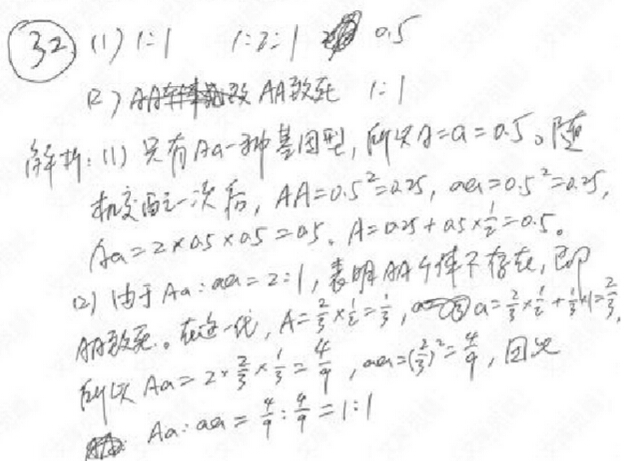 32 (1) 1:1 1:2:1 0.5
(2) AA致死 1:1
解析:(1) 只有Aa一种基因型,所以A=a=0.5。随
机交配一次后,AA=0.5²=0.25,aa=0.5²=0.25,
Aa=2×0.5×0.5=0.5。A=0.25+0.5×1/2=0.5。
(2) 由于Aa:aa=2:1,表明AA个体不存在,即
AA致死。在这一代,A=2/3×1/2=1/3,a=2/3×1/2+1/3×1=2/3,
所以Aa=2×2/3×1/3=4/9,aa=(2/3)²=4/9,因此
Aa:aa=4/9:4/9=1:1